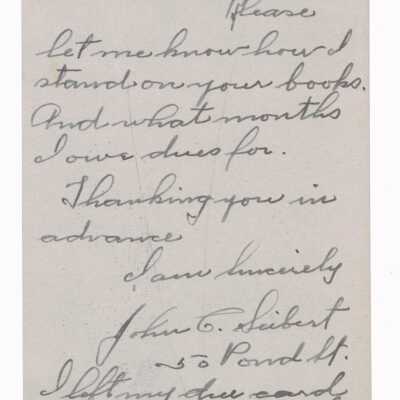 Please
let me know how I
stand on your books.
And what months
I owe dues for.
Thanking you in
advance
I am Sincerely
John C. Seibert
50 Pond St.
I left my due card